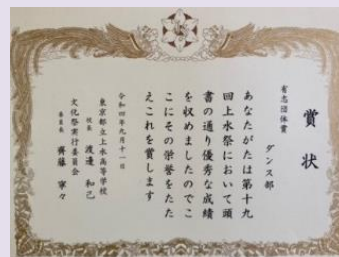 賞状
有志団体賞
ダンス部
あなたがたは第十九
回上水祭において頭
書の通り優秀な成績
を収めましたのでこ
こにその栄誉をたた
えこれを賞します
令和四年九月十一日
東京都立上水高等学校
校長 渡邊 和己
文化祭実行委員会
委員長 齊藤 寧々